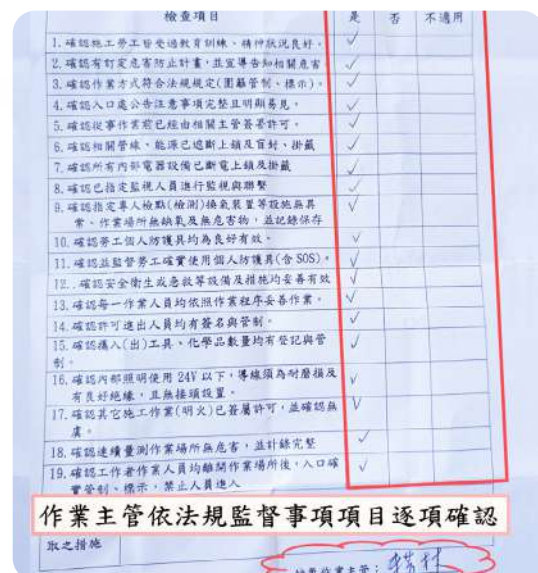 檢查項目 是 否 不適用
1. 確認施工勞工皆受過教育訓練、精神狀況良好。 ✓
2. 確認有訂定危害防止計畫，並宣導告知相關危害。 ✓
3. 確認作業方式符合法規規定(圍籬管制、標示)。 ✓
4. 確認入口處公告注意事項完整且明顯易見。 ✓
5. 確認從事作業前已經由相關主管簽署許可。 ✓
6. 確認相關管線、能源已遮斷上鎖及盲封、掛籤 ✓
7. 確認所有內部電器設備已斷電上鎖及掛籤 ✓
8. 確認已指定監視人員進行監視與聯繫 ✓
9. 確認指定專人檢點(檢測)換氣裝置等設施無異 ✓
常、作業場所無缺氧及無危害物，並記錄保存
10. 確認勞工個人防護具均為良好有效。 ✓
11. 確認並監督勞工確實使用個人防護具(含 SOS)。 ✓
12. .確認安全衛生或急救等設備及措施均妥善有效 ✓
13. 確認每一作業人員均依照作業程序妥善作業。 ✓
14. 確認許可進出人員均有簽名與管制。 ✓
15. 確認攜入(出)工具、化學品數量均有登記與管 ✓
制。
16. 確認內部照明使用 24V 以下，導線須為耐磨損及 ✓
有良好絕緣，且無接頭設置。
17. 確認其它施工作業(明火)已簽屬許可，並確認無 ✓
虞。
18. 確認連續量測作業場所無危害，並計錄完整 ✓
19. 確認工作者作業人員均離開作業場所後，入口確 ✓
實管制、標示，禁止人員進入
作業主管依法規監督事項項目逐項確認
取之措施
作業主管：